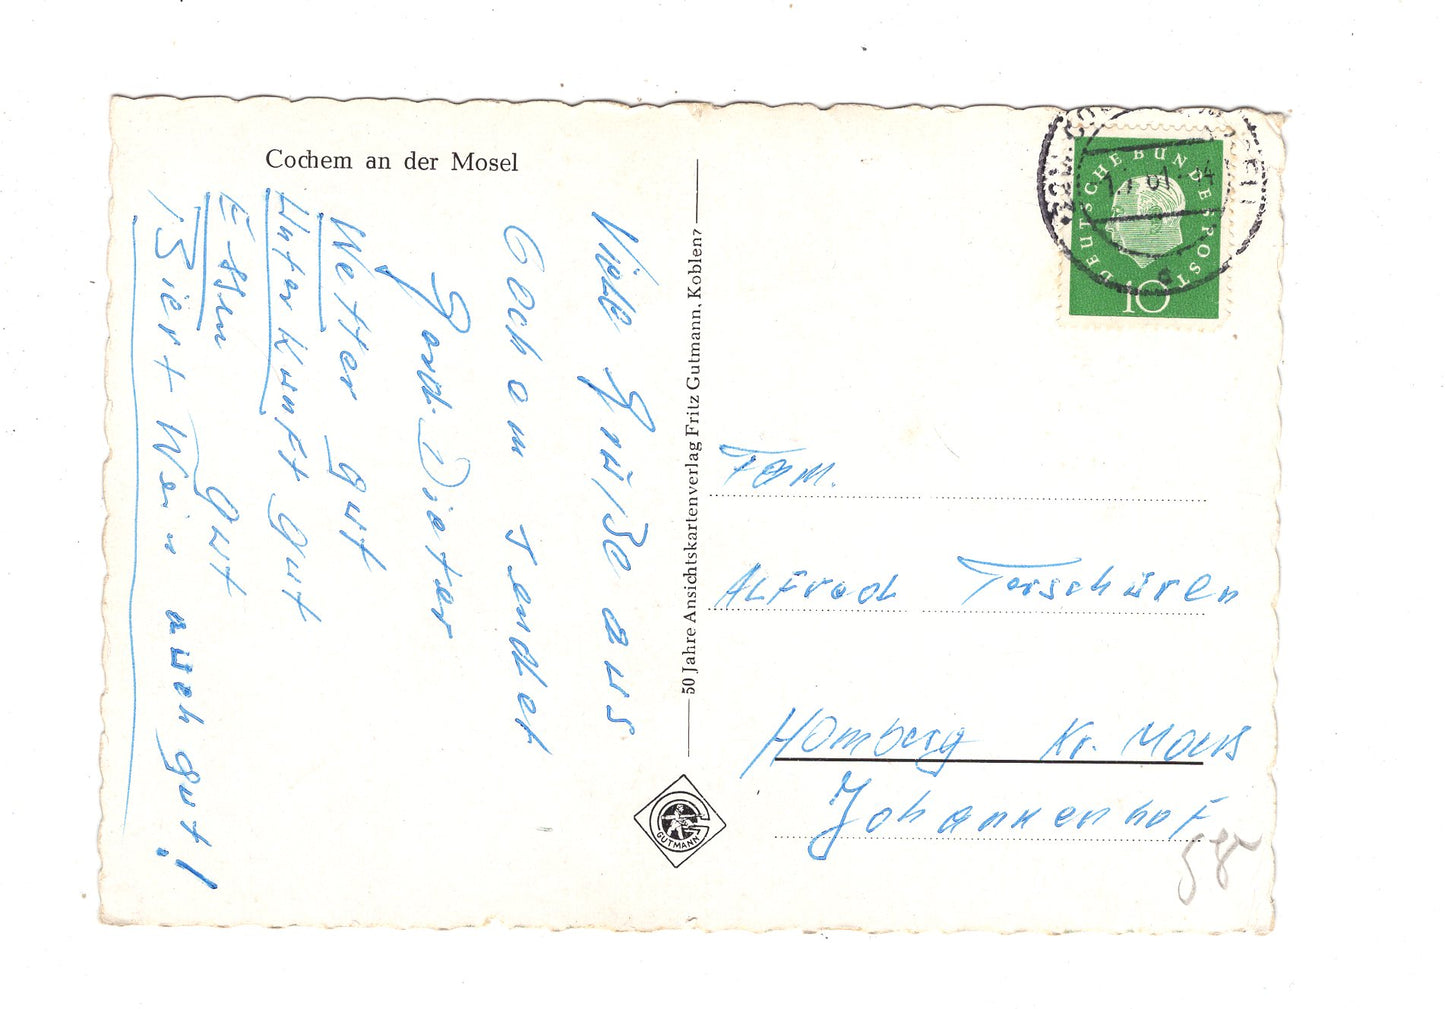 Cochem an der Mosel
Viele Grüße aus
Cochem sendet
Gerd-Dieter
Wetter gut
Unterkunft gut
Essen gut
Bier + Wein auch gut!
50 Jahre Ansichtskartenverlag Fritz Gutmann, Koblenz
GUTMANN
DEUTSCHE BUNDESPOST
10
Fam.
Alfred Terschüren
Homberg Kr. Moers
Johannenhof
58